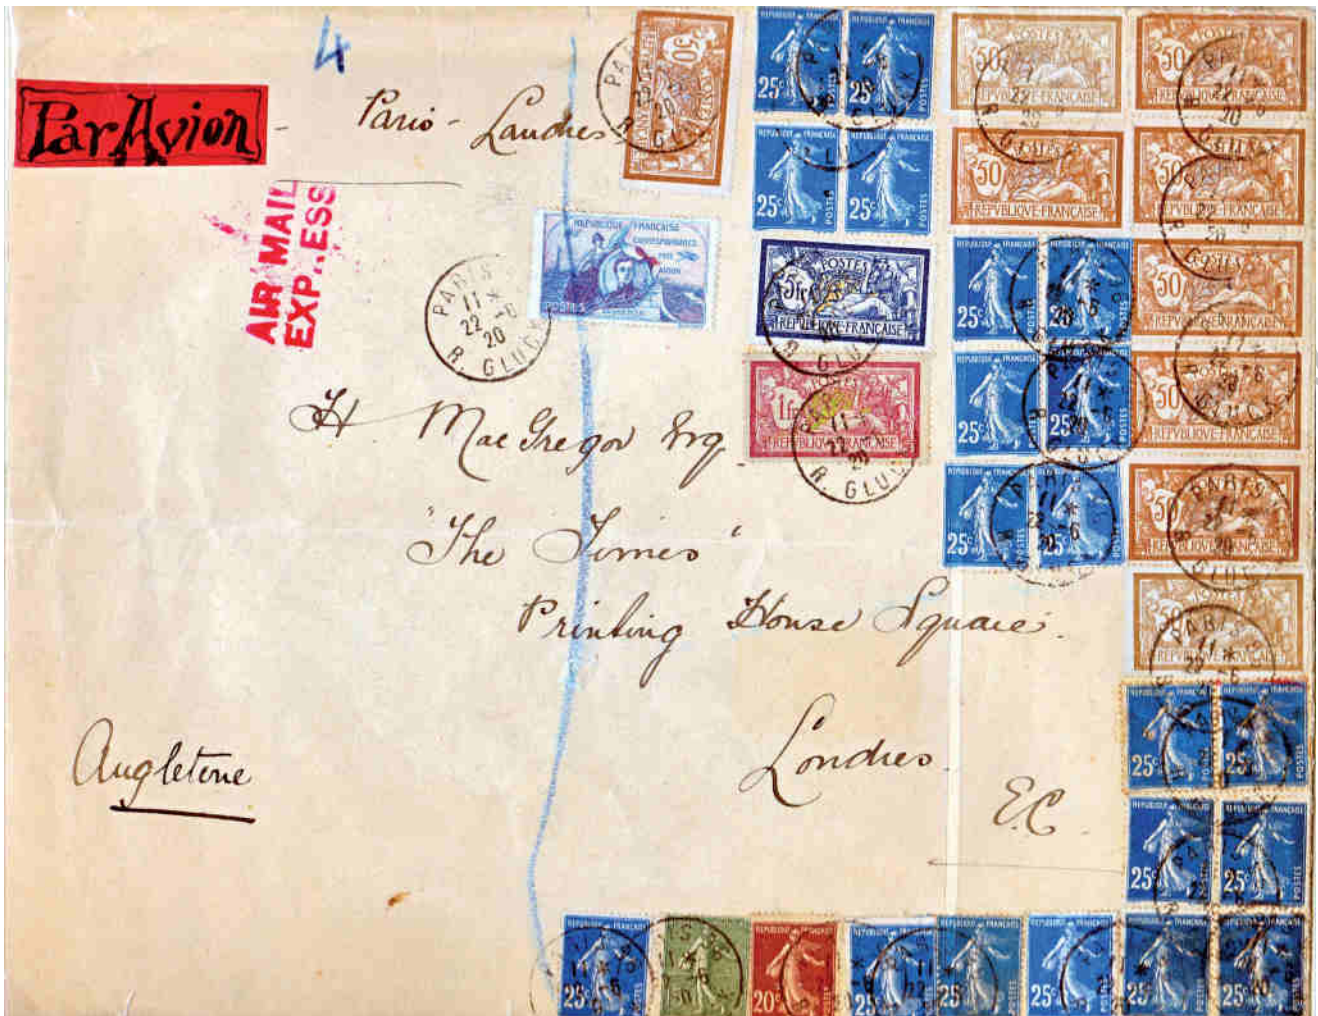 4
Par Avion
Paris - Londres
AIR MAIL
EXP..ESS
PARIS
11 *
22 -6
20
R. GLUCK
REPUBLIQUE FRANÇAISE
CORRESPONDANCE
PAR
AVION
POSTES
50 POSTES
REPVBLIQVE·FRANÇAISE
5fr POSTES
REPVBLIQVE·FRANÇAISE
1fr POSTES
REPVBLIQVE·FRANÇAISE
REPUBLIQUE FRANÇAISE
25c POSTES
H MacGregor Esq
"The Times"
Printing House Square.
Londres.
E.C.
Angleterre
REPUBLIQUE FRANÇAISE
20c